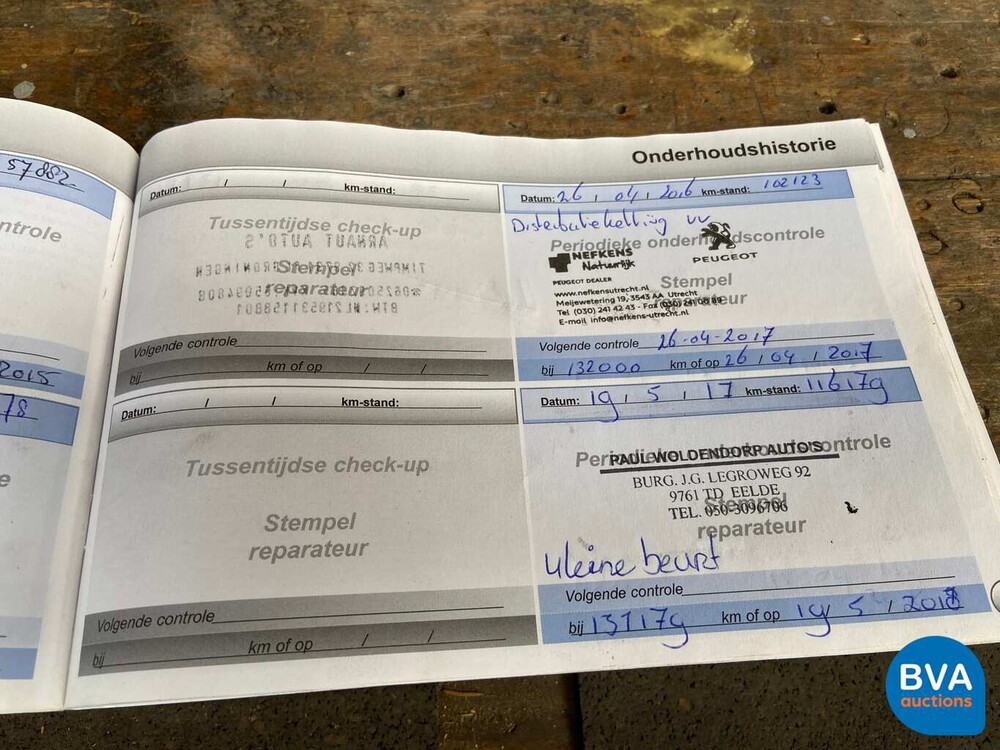 57882
ntrole
2015
78
e
Onderhoudshistorie
Datum: / / km-stand:
Tussentijdse check-up
ARNAUT AUTO'S
Stempel
reparateur
Volgende controle
bij km of op / /
Datum: / / km-stand:
Tussentijdse check-up
Stempel
reparateur
Volgende controle
bij km of op / /
Datum: 26 / 04 / 2016 km-stand: 102123
Distributieketting vv
Periodieke onderhoudscontrole
NEFKENS
Natuurlijk
PEUGEOT
PEUGEOT DEALER
Stempel
reparateur
www.nefkensutrecht.nl
Meijewetering 19, 3543 AA Utrecht
Tel (030) 241 42 43 - Fax (030) 241 08 89
E-mail info@nefkens-utrecht.nl
Volgende controle 26-04-2017
bij 132000 km of op 26 / 04 / 2017
Datum: 19 / 5 / 17 km-stand: 116179
Periodieke onderhoudscontrole
PAUL WOLDENDORP AUTO'S
BURG. J.G. LEGROWEG 92
9761 TD EELDE
TEL. 050-3096706
Stempel
reparateur
kleine beurt
Volgende controle
bij 131179 km of op 19 / 5 / 2018
BVA
auctions